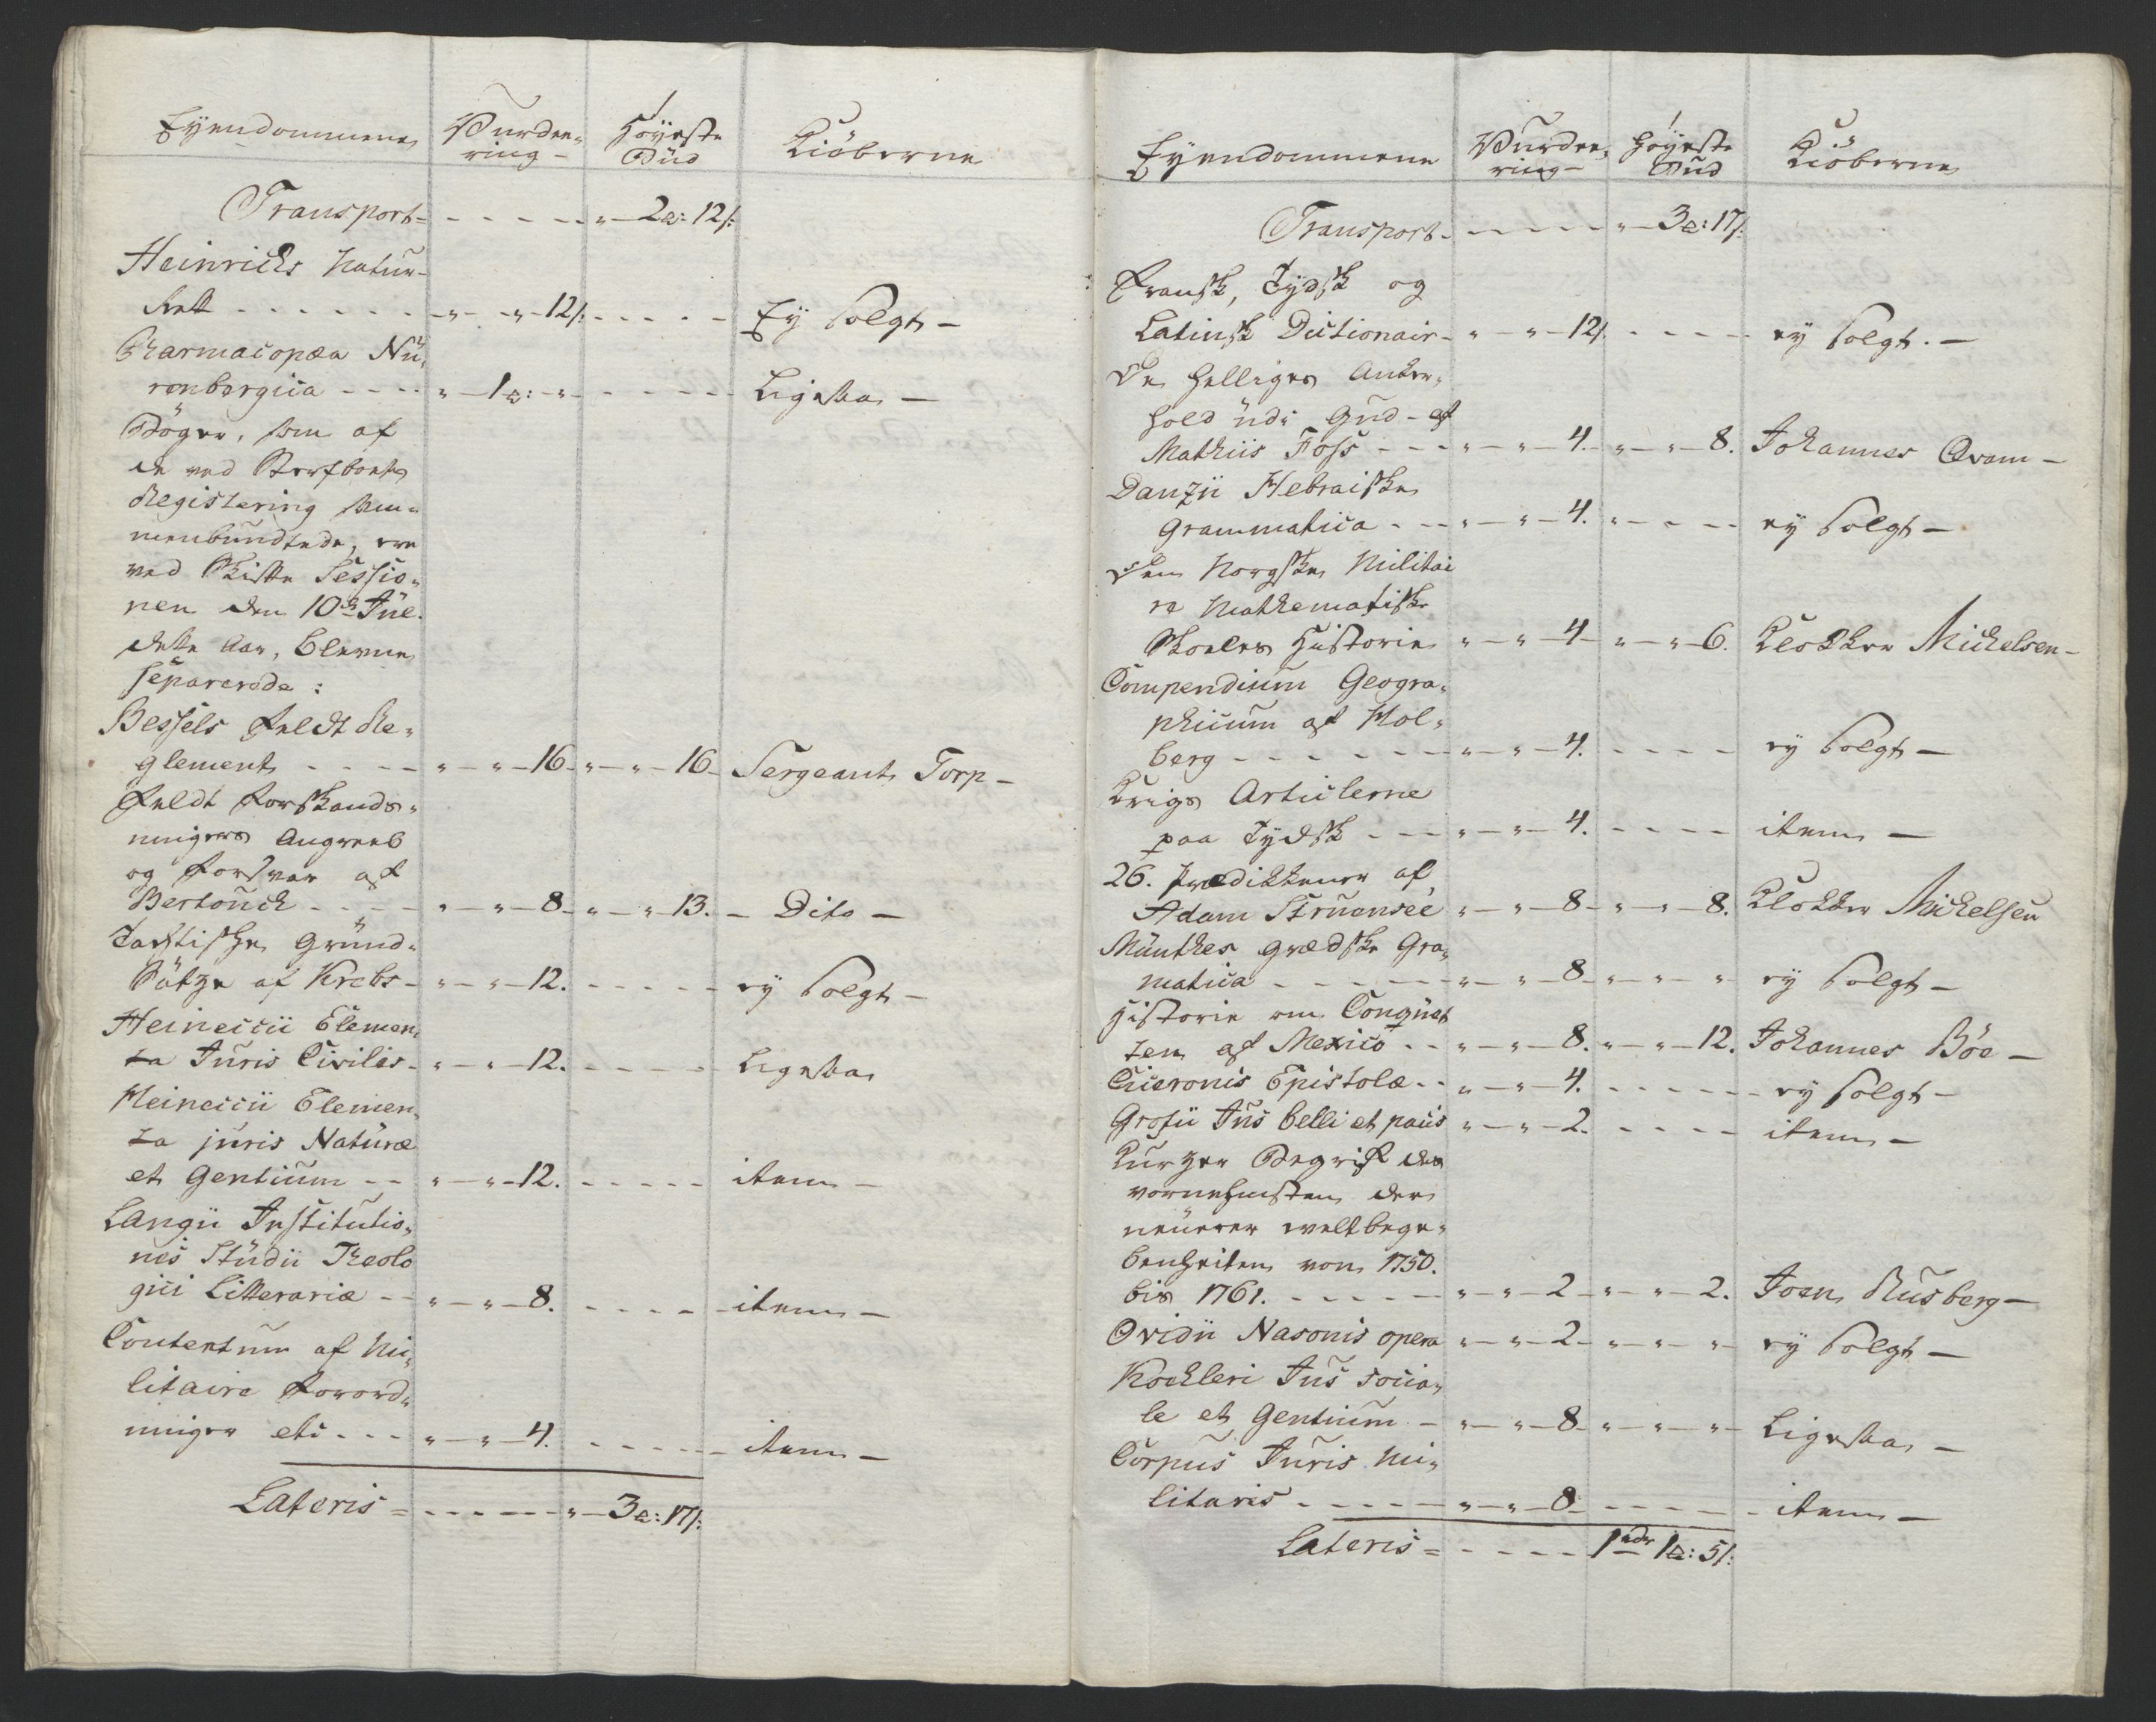 Eyendommene Vurdee- Höyeste Kiöberne
ring - Bud
Transport - - - - - " - 2 : 12 s:
Heinrichs Natur-
Rett - - - - - - " - " - 12 s: - - - - Ey Solgt -
Pharmacopæa Nü-
renbergica - - - - " - 1 : " - - - - - Ligesaa -
Bøger, som af
de ved Sterfboets
Registering sam-
menbundtede, ere
ved Skifte Sessio-
nen den 10de Jue.
dette Aar, bleven
separerede :
Bessels Feldt Re-
glement - - - - " - " - 16 - " - " - 16 - Sergeant Torp -
Feldt Forskands-
ningers Angreeb
og Forsvar af
- - - - " - " - 8 - " - " - 13. - Dito -
Tacktische Gründ-
Sätze af Krebs - " - " - 12. - - - - - ey Solgt -
Heineccii Elemen-
ta Juris Civilis - " - " - 12. - - - - Ligesaa
Heineccii Elemen-
ta juris Naturæ
et Gentium - - " - " - 12. - - - - - item -
Langii Institutio-
nes Studii Theolo
gici Litterariæ - - " - " - 8. - - - - - item -
Contentum af Mi-
litaire Forord-
ninger etc - - - " - " - 4. - - - - - item -
Lateris = - - - - - " - 3 : 17 s:
Eyendommene Vurdee- Höyeste Kiöberne
ring - Bud
Transport - - - - - " - 3 : 17 s:
Fransk, Tydsk og
Latinsk Dictionair - " - " - 12 s. - - - - ey Solgt. -
De Helliges Anker-
hold udi Gud - af
Mathiis Foss - - - " - " - 4. " - " - 8. Johannes Qvam -
Danzii Hebraiske
Grammatica - - - " - " - 4. " - - - - ey Solgt -
Den Norgske Militai
re Mathematiske
Skoeles Historie " - " - 4 - " - " - 6. Klokker Michelsen -
Compendium Geogra-
phicum af Hol-
berg - - - - - - " - " - 4. - - - - ey Solgt -
Krigs Articlerne
paa Tydsk - - - " - " - 4. - - - - item -
26. Prædikkener af
Adam Struensee " - " - 8 - " - " - 8. Klokker Michelsen
Münthes Grædske Gra-
matica - - - - - " - " - 8 - " - " - " ey Solgt -
Historie om Conquet
ten af Mexico - - " - " - 8. " - " - 12. Johannes Böe -
Ciceronis Epistolæ - - " - " - 4. - - - - - ey Solgt -
Grotii Jus belli et pacis " - " - 2. - - - - item -
Kurzer Begrif der
vornehmsten der
neüerer weltbege-
benheiten von 1750.
bis 1761. - - - - - " - " - 2 - " - " - 2. Joen Rusberg -
Ovidii Nasonis opera " - " - 2 - " - " - " - ey Solgt -
Koehleri Jus socia-
le et Gentium - " - " - 8 - " - " - " - Ligesaa -
Corpus Juris Mi-
litaris - - - - - " - " - 8 - - - - - item -
Lateris = - - - - 1 rdr 1 : 5 s: